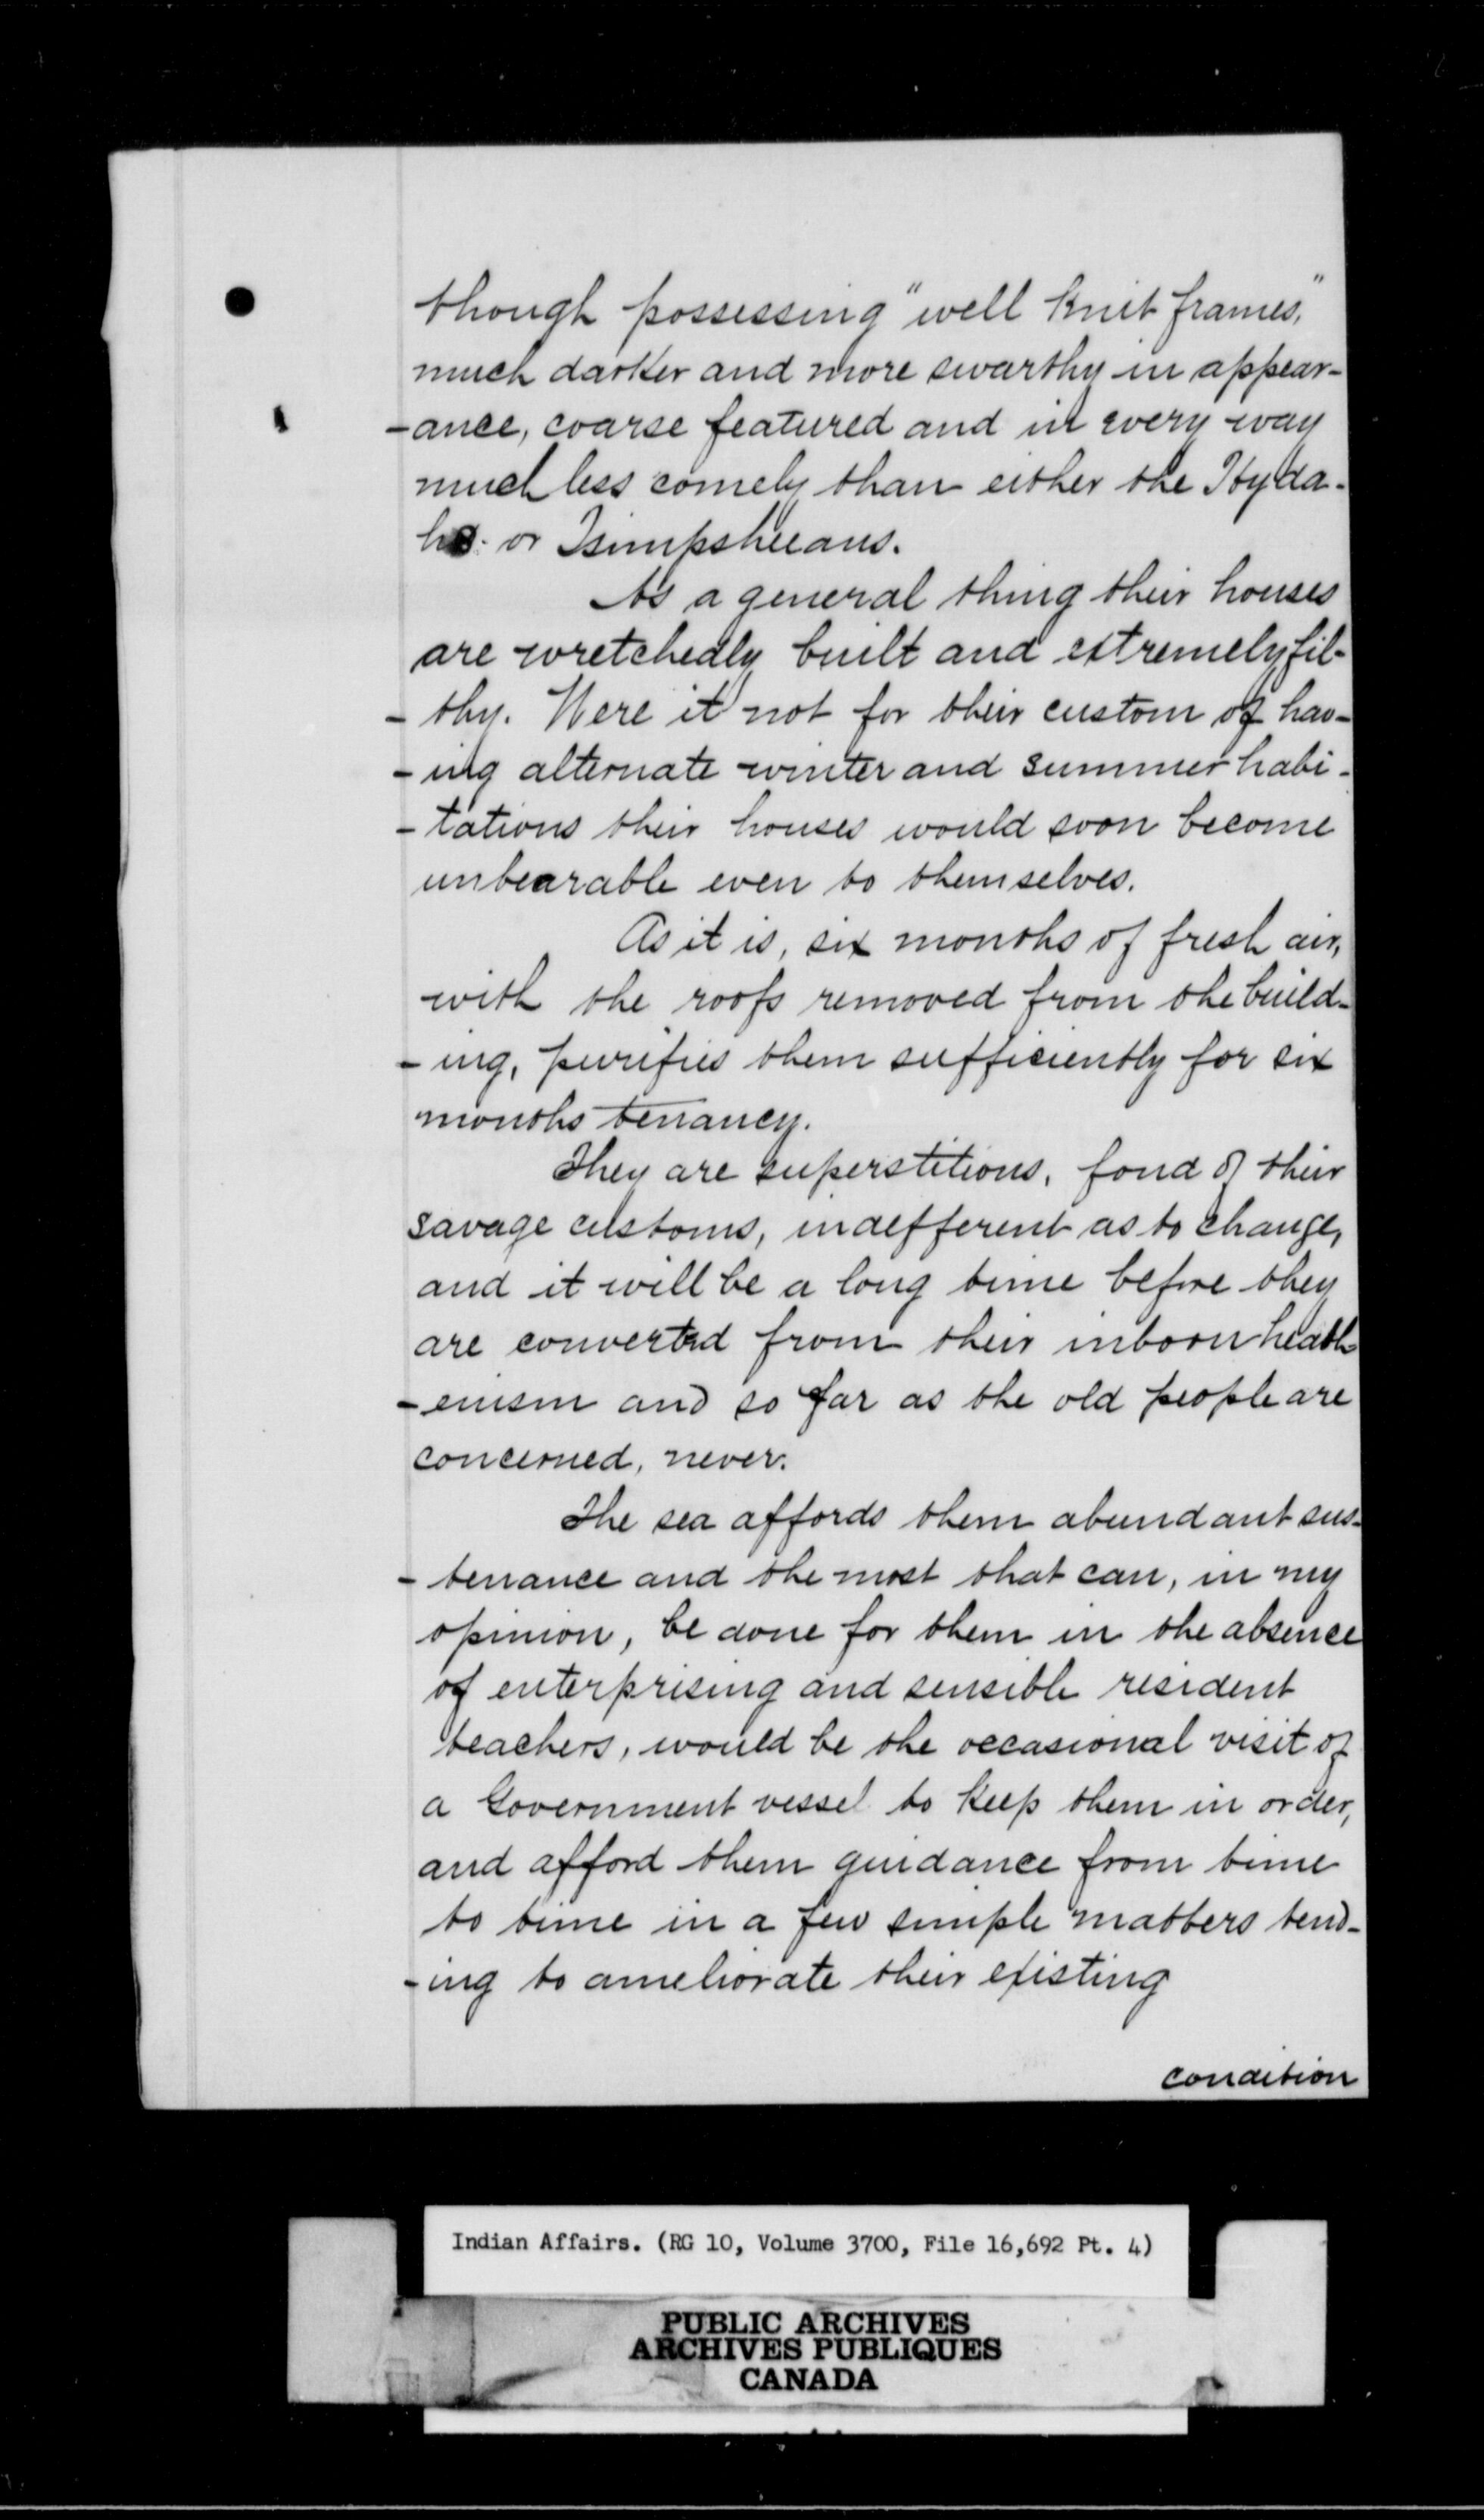 though possessing "well knit frames,"
much darker and more swarthy in appear-
-ance, coarse featured and in every way
much less comely than either the Hyda-
hs. or Tsimpsheeans.
As a general thing their houses
are wretchedly built and extremely fil-
-thy. Were it not for their custom of hav-
-ing alternate winter and summer habi-
-tations their houses would soon become
unbearable even to themselves.
As it is, six months of fresh air,
with the roofs removed from the build-
-ing, purifies them sufficiently for six
months tenancy.
They are superstitious, fond of their
savage customs, indefferent as to change,
and it will be a long time before they
are converted from their inborn heath-
-enism and so far as the old people are
concerned, never.
The sea affords them abundant sus-
-tenance and the most that can, in my
opinion, be done for them in the absence
of enterprising and sensible resident
teachers, would be the occasional visit of
a Government vessel to keep them in order,
and afford them guidance from time
to time in a few simple matters tend-
-ing to ameliorate their existing
condition
Indian Affairs. (RG 10, Volume 3700, File 16,692 Pt. 4)
PUBLIC ARCHIVES
ARCHIVES PUBLIQUES
CANADA